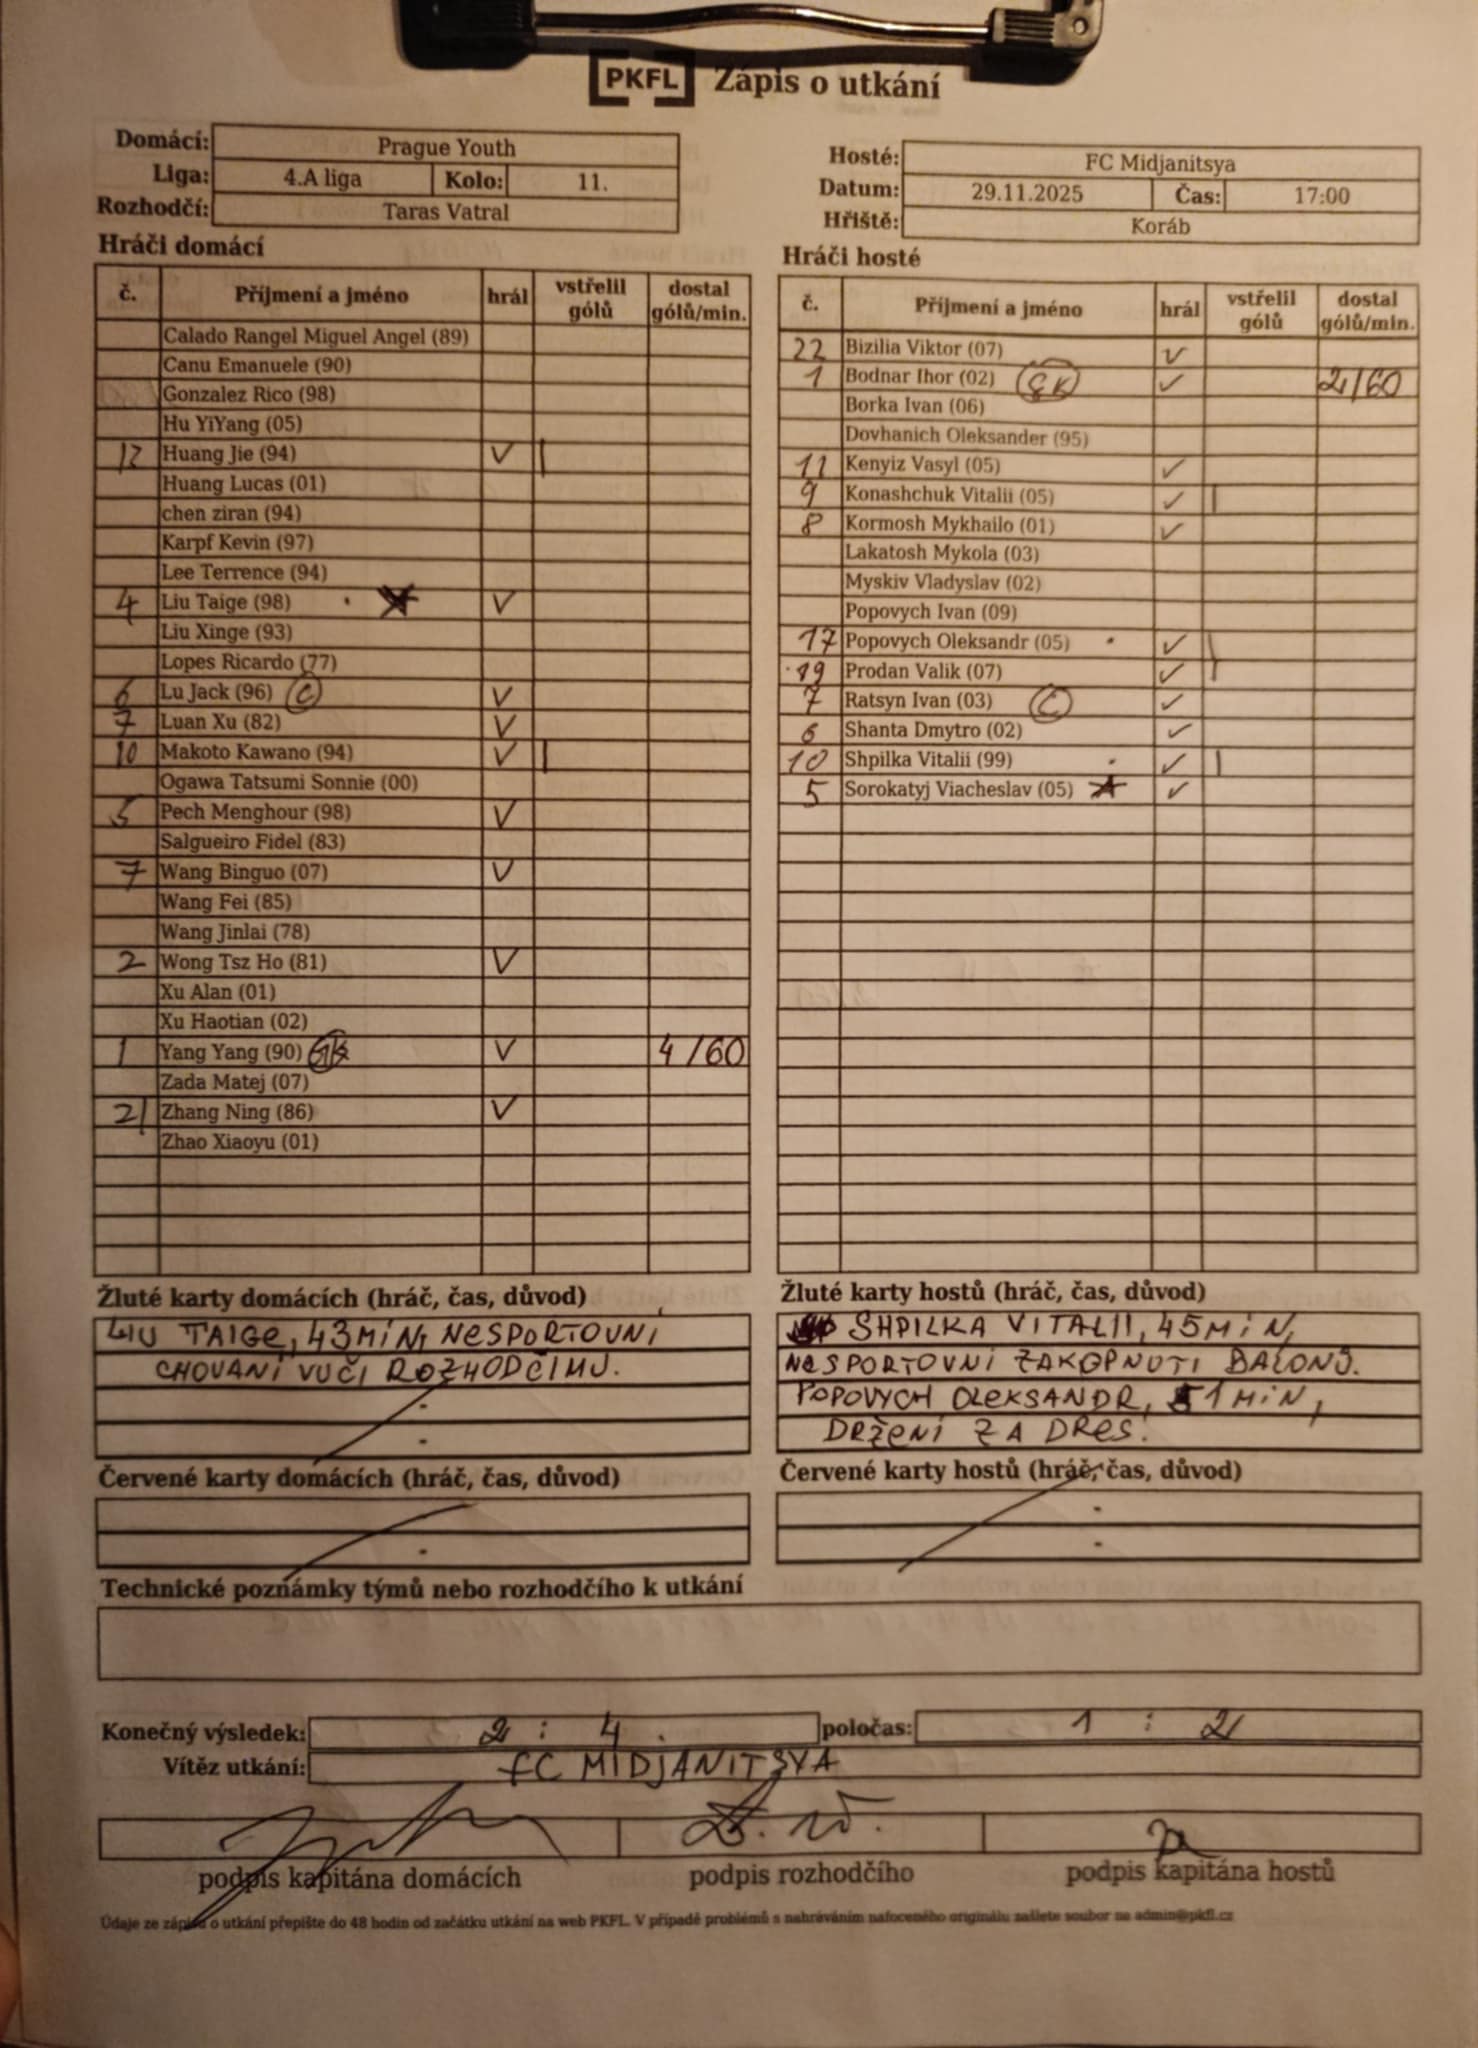 PKFL Zápis o utkání
Domácí: Prague Youth
Liga: 4.A liga Kolo: 11.
Rozhodčí: Taras Vatral
Hosté: FC Midjanitsya
Datum: 29.11.2025 Čas: 17:00
Hřiště: Koráb
Hráči domácí
č. Příjmení a jméno hrál vstřelil gólů dostal gólů/min.
Calado Rangel Miguel Angel (89)
Canu Emanuele (90)
Gonzalez Rico (98)
Hu YiYang (05)
Huang Jie (94) V |
Huang Lucas (01)
chen ziran (94)
Karpf Kevin (97)
Lee Terrence (94)
4 Liu Taige (98) V
Liu Xinge (93)
Lopes Ricardo (77)
6 Lu Jack (96) C V
7 Luan Xu (82) V
10 Makoto Kawano (94) V |
Ogawa Tatsumi Sonnie (00)
5 Pech Menghour (98) V
Salgueiro Fidel (83)
7 Wang Binguo (07) V
Wang Fei (85)
Wang Jinlai (78)
2 Wong Tsz Ho (81) V
Xu Alan (01)
Xu Haotian (02)
1 Yang Yang (90) GK V 4/60
Zada Matej (07)
21 Zhang Ning (86) V
Zhao Xiaoyu (01)
Hráči hosté
č. Příjmení a jméno hrál vstřelil gólů dostal gólů/min.
22 Bizilia Viktor (07) ✓
1 Bodnar Ihor (02) GK ✓ 2/60
Borka Ivan (06)
Dovhanich Oleksander (95)
11 Kenyiz Vasyl (05) ✓
9 Konashchuk Vitalii (05) ✓ |
8 Kormosh Mykhailo (01) ✓
Lakatosh Mykola (03)
Myskiv Vladyslav (02)
Popovych Ivan (09)
17 Popovych Oleksandr (05) ✓ |
19 Prodan Valik (07) ✓ |
7 Ratsyn Ivan (03) C ✓
6 Shanta Dmytro (02) ✓
10 Shpilka Vitalii (99) ✓ |
5 Sorokatyj Viacheslav (05) ✓
Žluté karty domácích (hráč, čas, důvod)
LIU TAIGE, 43MIN, NESPORTOVNÍ
CHOVANÍ VUČI ROZHODČIMU.
Žluté karty hostů (hráč, čas, důvod)
SHPILKA VITALII, 45MIN,
NESPORTOVNI ZAKOPNUTI BALONŮ.
POPOVYCH OLEKSANDR, 51MIN,
DRŽENÍ ZA DRES.
Červené karty domácích (hráč, čas, důvod)
Červené karty hostů (hráč, čas, důvod)
Technické poznámky týmů nebo rozhodčího k utkání
Konečný výsledek: 2 : 4 poločas: 1 : 2
Vítěz utkání: FC MIDJANITSYA
podpis kapitána domácích podpis rozhodčího podpis kapitána hostů
Údaje ze zápisu o utkání přepište do 48 hodin od začátku utkání na web PKFL. V případě problémů s nahráváním nafoceného originálu zašlete soubor na admin@pkfl.cz